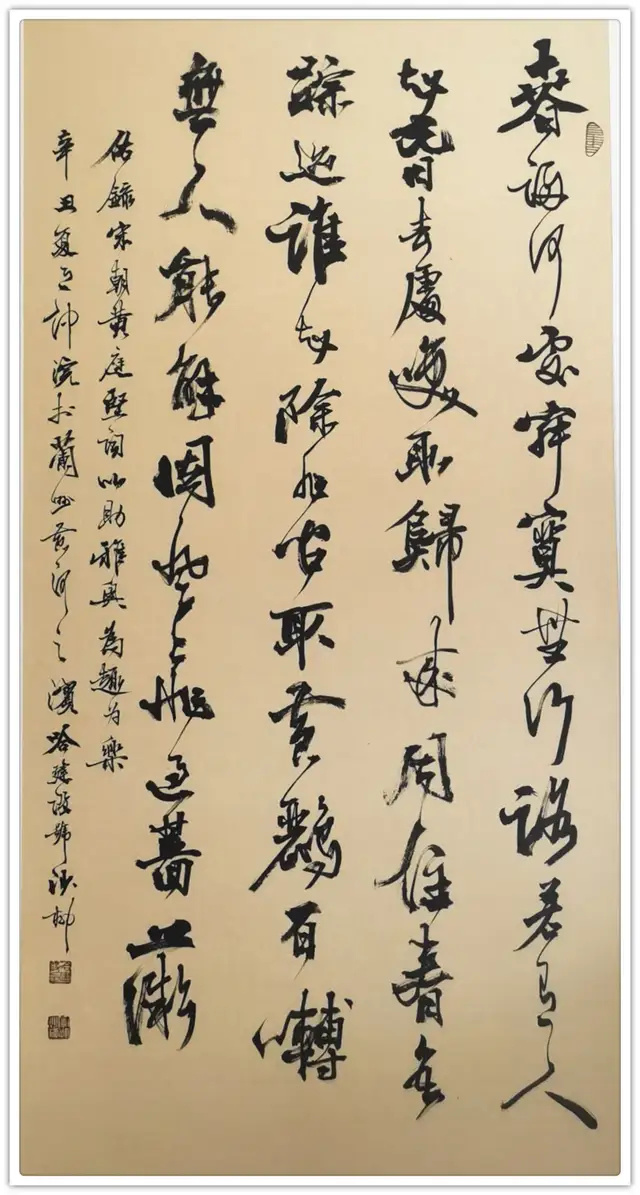 春歸何處寂寞無行路若有人
知春去處喚取歸來同住春無
踪迹誰知除非問取黄鸝百囀
無人能解因風飛過薔薇
錄宋朝黄庭堅詞以助雅興為趣為樂
辛丑夏於蘭州黄河之濱哈建設號沙柳